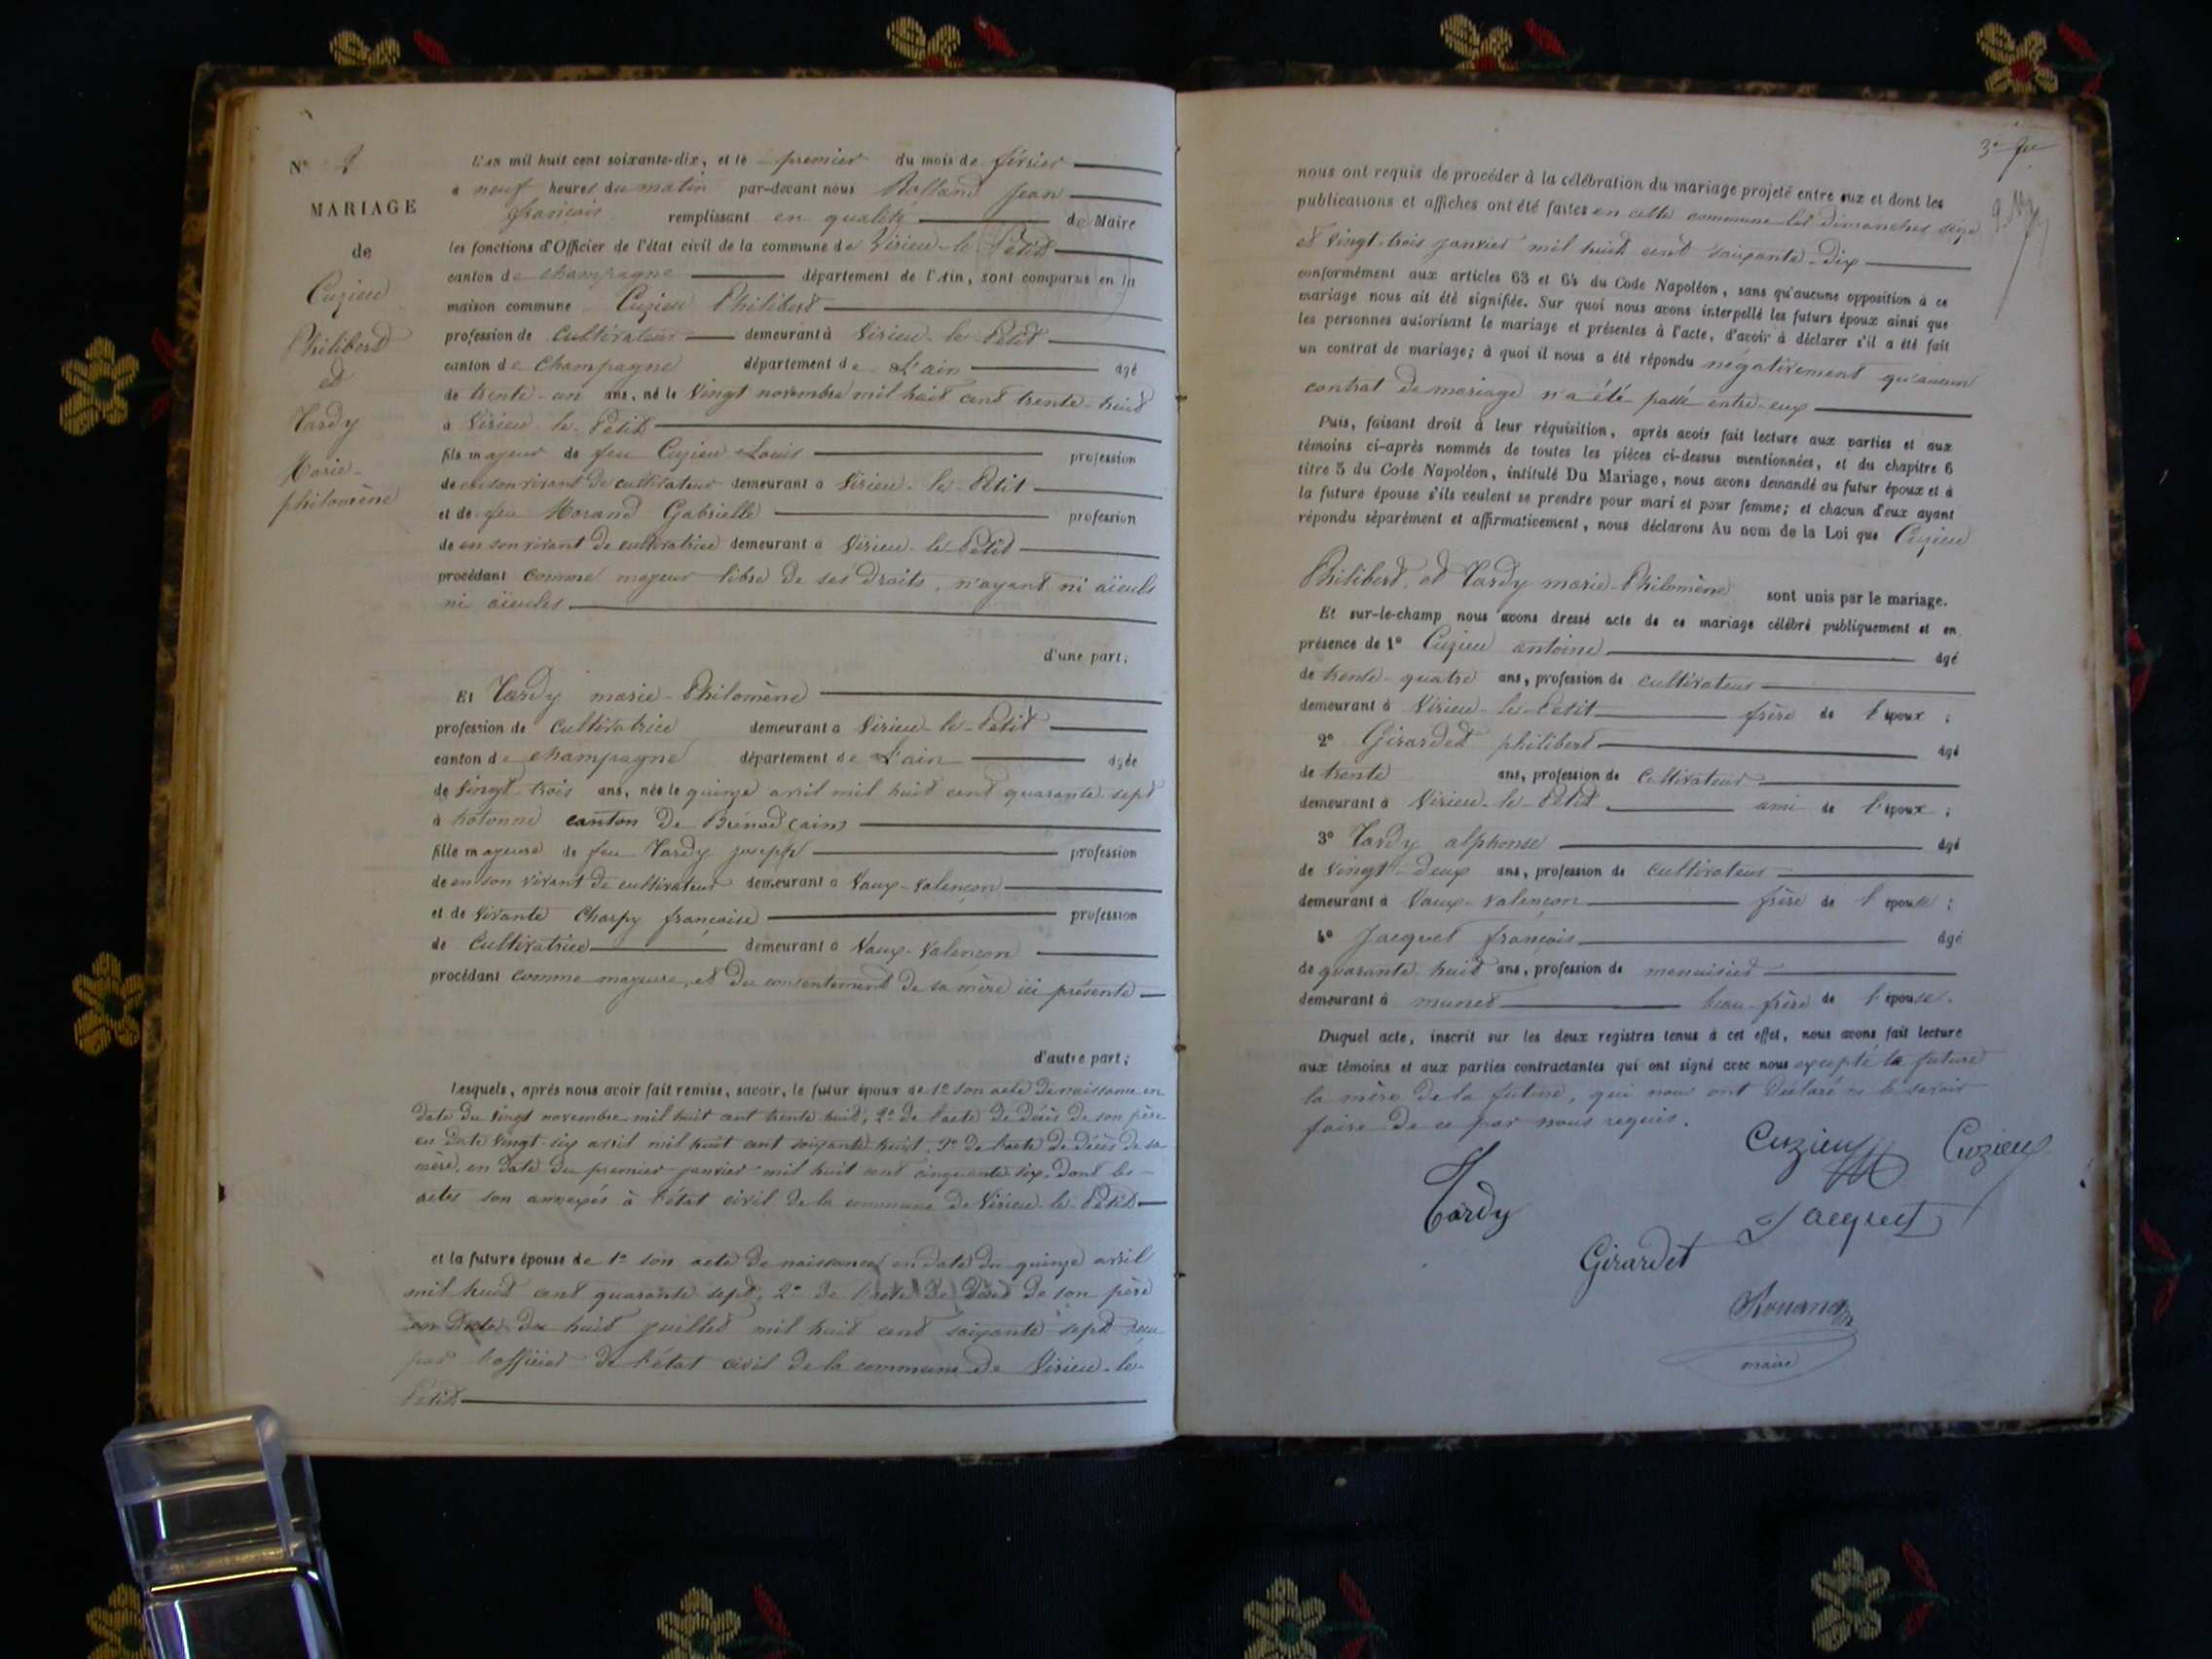 N° 2
MARIAGE
de
Cuzieu
Philibert
et
Tardy
Marie-
philomène
L'an mil huit cent soixante-dix, et le premier du mois de février
à neuf heures du matin par-devant nous Rolland Jean
français remplissant en qualité de Maire
les fonctions d'Officier de l'état civil de la commune de Virieu-le-Petit
canton de champagne département de l'Ain, sont comparus en la
maison commune Cuzieu Philibert
profession de cultivateur demeurant à Virieu-le-Petit
canton de Champagne département de L'ain âgé
de trente-un ans, né le vingt novembre mil huit cent trente-huit
à Virieu-le-Petit
fils majeur de feu Cuzieu Louis profession
de en son vivant de cultivateur demeurant à Virieu-le-Petit
et de feu Morand Gabrielle profession
de en son vivant de cultivatrice demeurant à Virieu-le-Petit
procédant comme majeur libre de ses droits, n'ayant ni aïeuls
ni aïeules
d'une part;
Et Tardy marie-Philomène
profession de cultivatrice demeurant à Virieu-le-Petit
canton de champagne département de L'ain âgée
de vingt-trois ans, née le quinze avril mil huit cent quarante-sept
à hotonne canton de Brénod (ain)
fille majeure de feu Tardy joseph profession
de en son vivant de cultivateur demeurant à Vaux-Valençon
et de vivante Charpy françoise profession
de cultivatrice demeurant à Vaux-Valençon
procédant comme majeure, et du consentement de sa mère ici présente
d'autre part;
Lesquels, après nous avoir fait remise, savoir, le futur époux de 1° son acte de naissance en
date du vingt novembre mil huit cent trente huit, 2° de l'acte de décès de son père
en date vingt-six avril mil huit cent soixante huit, 3° de l'acte de décès de sa
mère, en date du premier janvier mil huit cent cinquante six, dont les
actes son annexés à l'état civil de la commune de Virieu-le-Petit
et la future épouse de 1° son acte de naissance en date du quinze avril
mil huit cent quarante sept, 2° de l'acte de décès de son père
en date du huit juillet mil huit cent soixante sept reçu
par l'officier de l'état civil de la commune de Virieu-le-
Petit
3e
nous ont requis de procéder à la célébration du mariage projeté entre eux et dont les
publications et affiches ont été faites en cette commune les dimanches seize
et vingt-trois janvier mil huit cent soixante-dix
conformément aux articles 63 et 64 du Code Napoléon, sans qu'aucune opposition à ce
mariage nous ait été signifiée. Sur quoi nous avons interpellé les futurs époux ainsi que
les personnes autorisant le mariage et présentes à l'acte, d'avoir à déclarer s'il a été fait
un contrat de mariage; à quoi il nous a été répondu négativement qu'aucun
contrat de mariage n'a été passé entre-eux
Puis, faisant droit à leur réquisition, après avoir fait lecture aux parties et aux
témoins ci-après nommés de toutes les pièces ci-dessus mentionnées, et du chapitre 6
titre 5 du Code Napoléon, intitulé Du Mariage, nous avons demandé au futur époux et à
la future épouse s'ils veulent se prendre pour mari et pour femme; et chacun d'eux ayant
répondu séparément et affirmativement, nous déclarons Au nom de la Loi que Cuzieu
Philibert, et Tardy marie-Philomène sont unis par le mariage.
Et sur-le-champ nous avons dressé acte de ce mariage célébré publiquement et en
présence de 1° Cuzieu antoine âgé
de trente-quatre ans, profession de cultivateur
demeurant à Virieu-le-Petit frère de l'époux;
2° Girardet philibert âgé
de trente ans, profession de cultivateur
demeurant à Virieu-le-Petit ami de l'époux;
3° Tardy alphonse âgé
de vingt-deux ans, profession de cultivateur
demeurant à Vaux-Valençon frère de l'épouse;
4° Jacquet françois âgé
de quarante-huit ans, profession de menuisier
demeurant à munet beau-frère de l'épouse.
Duquel acte, inscrit sur les deux registres tenus à cet effet, nous avons fait lecture
aux témoins et aux parties contractantes qui ont signé avec nous excepté la future
la mère de la future, qui nous ont déclaré ne le savoir
faire de ce par nous requis.
Cuzieu Cuzieu
Tardy Jacquet
Girardet
maire